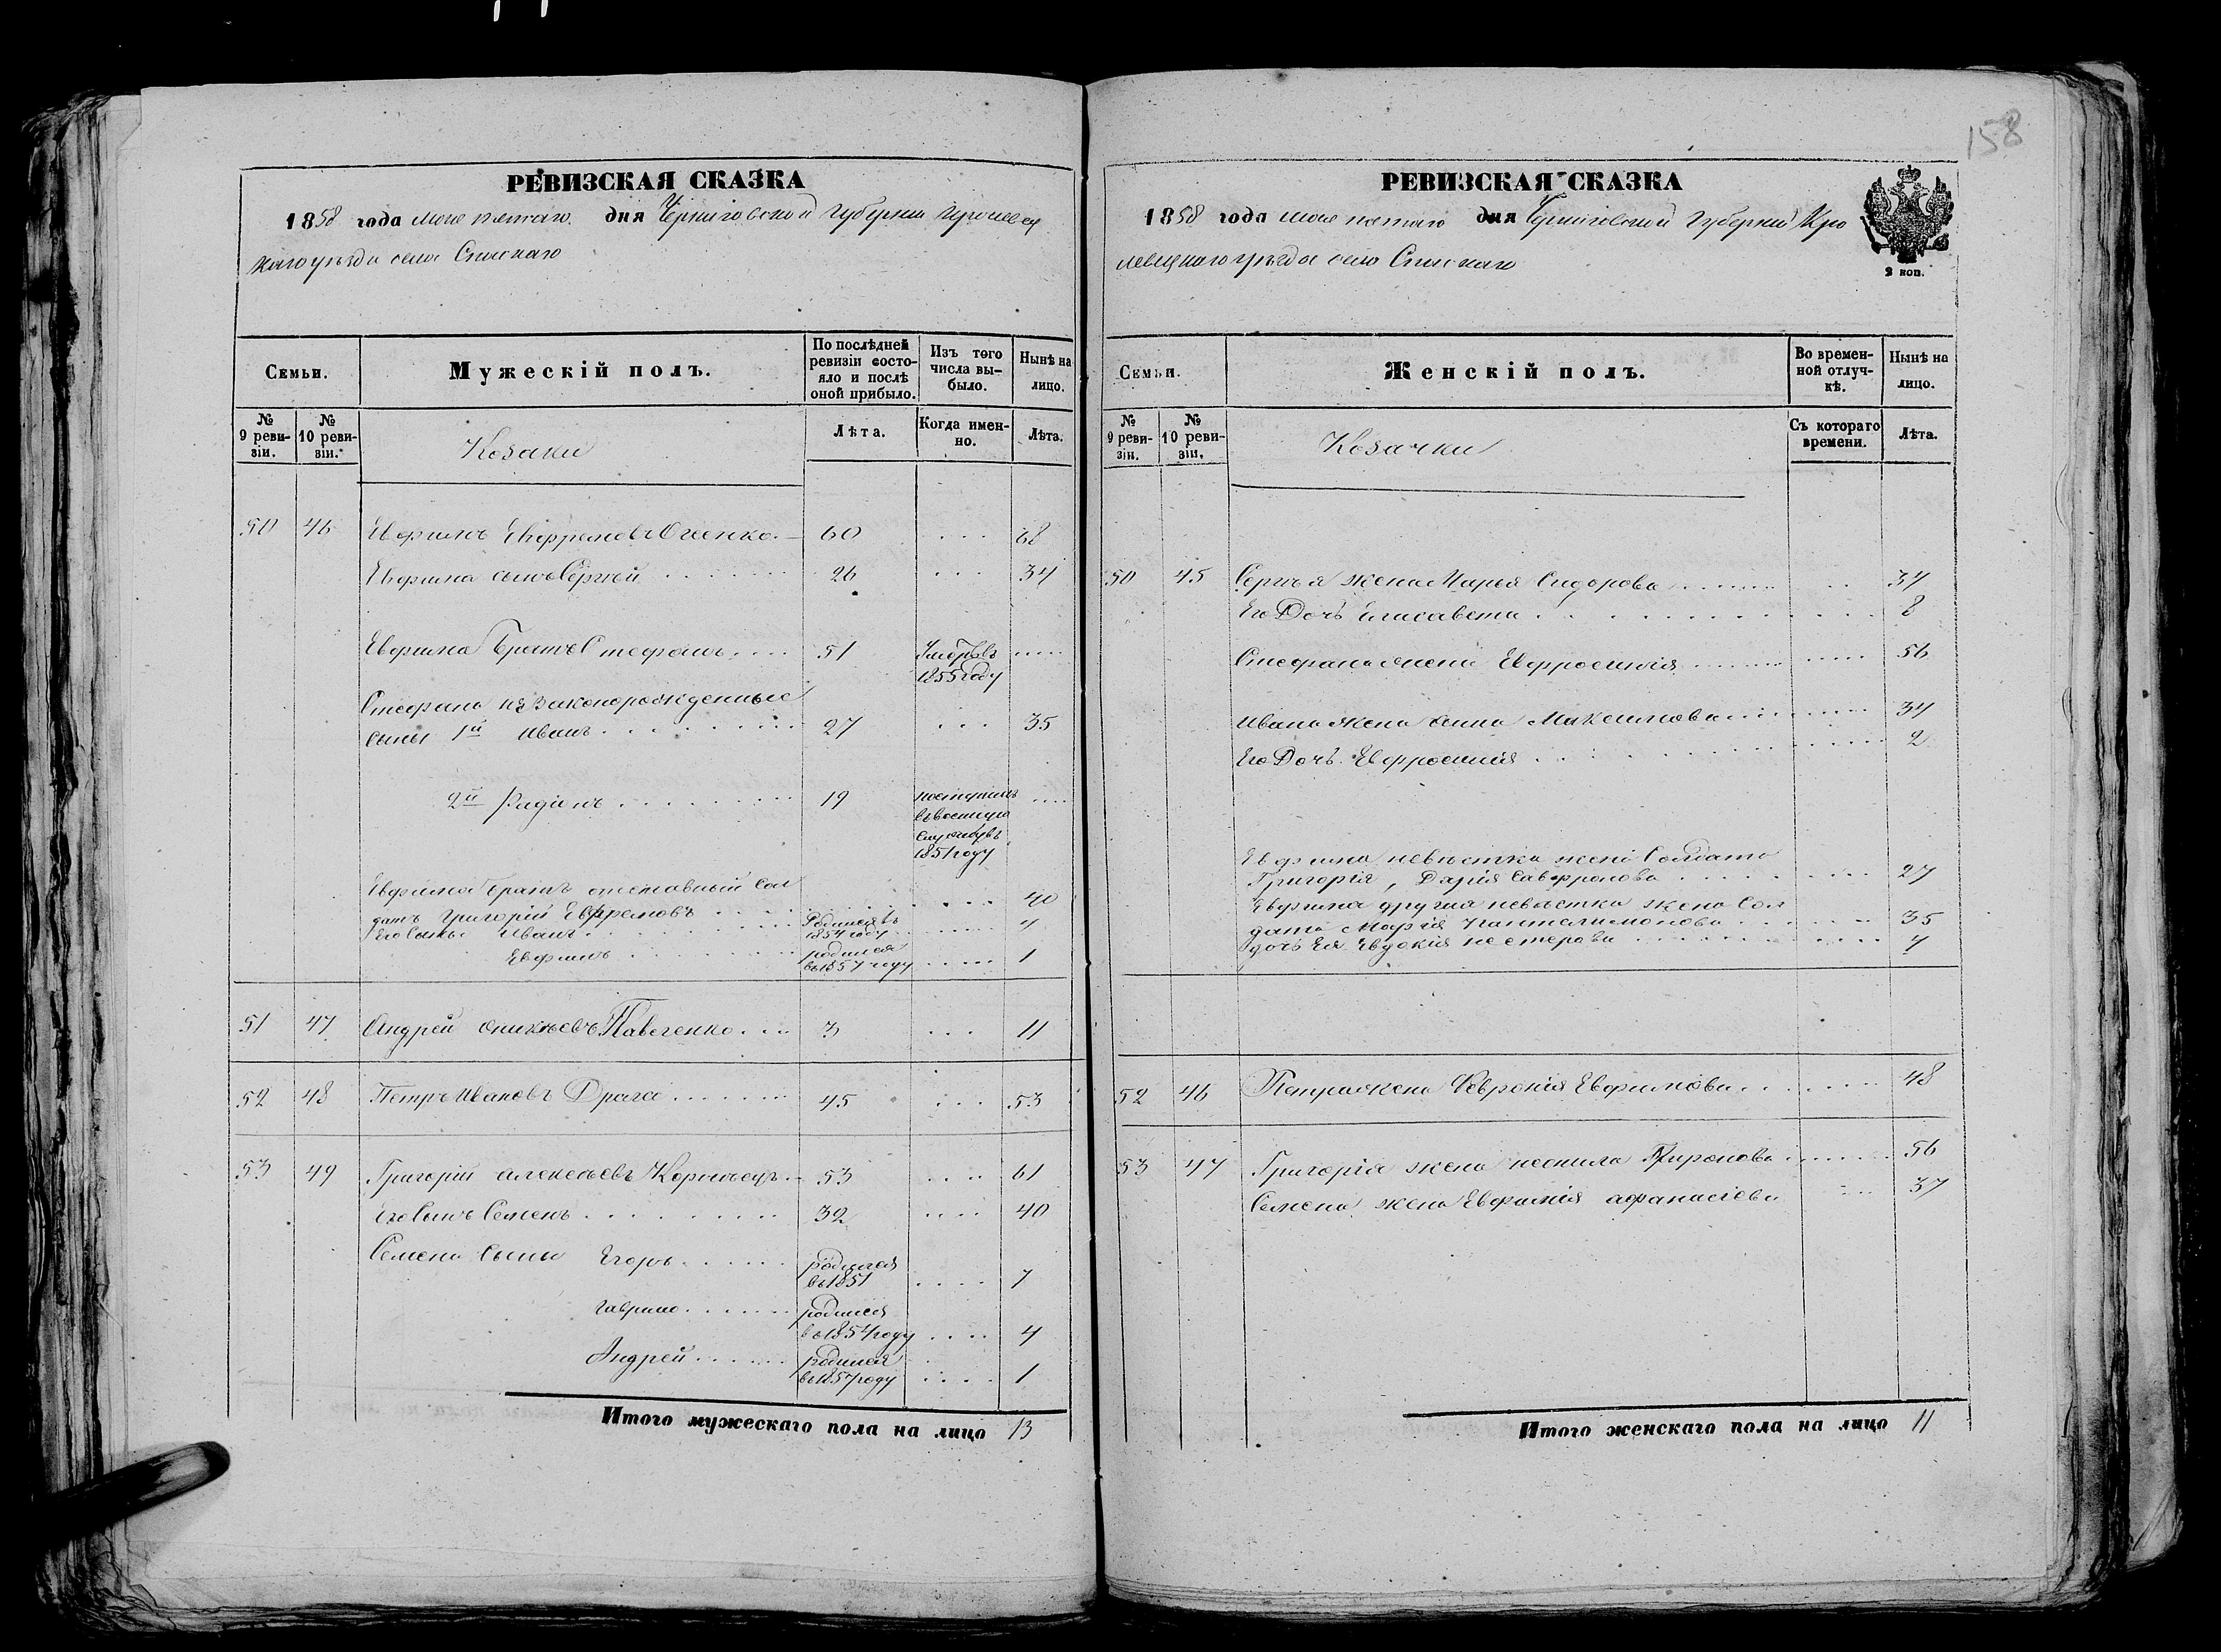 158
РЕВИЗСКАЯ СКАЗКА
1858 года мая пятаго дня Черниговской Губернии Кролевец
каго уезда села Спаскаго
Семьи.
Мужескій полъ.
По послѣдней ревизіи состояло и послѣ оной прибыло.
Изъ того числа выбыло.
Нынѣ на лицо.
№ 9 ревизіи.
№ 10 ревизіи.
Козаки
Лѣта.
Когда именно.
Лѣта.
50 46 Евфимъ Евфремовъ 60 ... 68
Евфима сынъ Сергѣй 26 ... 34
Евфима Братъ Стефанъ 51 Умеръ въ 1855 году
Стефана незаконорожденные
сыны 1й Иванъ 27 ... 35
2й Радіонъ 19 поступилъ въ военную службу въ 1851 году
Евфима братъ отставный Сол
датъ Григорій Евфремовъ 40
Его Сыны Иванъ Родился въ 1854 году 4
Евфимъ родился въ 1857 году 1
51 47 Андрей Павленко 3 ... 11
52 48 Петръ Ивановъ Драга 45 ... 53
53 49 Григорій Алексѣевъ 53 ... 61
Его Сынъ Семенъ 32 ... 40
Семена Сыны Егоръ родился въ 1851 7
Гаврило родился въ 1854 году 4
Андрей родился въ 1857 году 1
Итого мужескаго пола на лицо 13
РЕВИЗСКАЯ СКАЗКА
1858 года мая пятаго дня Черниговской Губернии Кро
левецкаго уезда села Спаскаго
2 коп.
Семьи.
Женскій полъ.
Во временной отлучкѣ.
Нынѣ на лицо.
№ 9 ревизіи.
№ 10 ревизіи.
Козачки
Съ котораго времени.
Лѣта.
50 45 Сергѣя жена Марья Сидорова 34
Его Дочь Елисавета 8
Стефана жена Евфросинія 56
Ивана жена Анна Максимова 34
Его Дочь Евфросинія 2
Евфима невѣстка жена Солдата
Григорія, Дарія 27
Евфима другая невѣстка жена Сол
дата Марія Пантелимонова 35
дочь Ея Евдокія Нестерова 7
52 46 Петра жена Февронія Евфимова 48
53 47 Григорія жена Неонила 56
Семена жена Евфимія Афанасіева 37
Итого женскаго пола на лицо 11